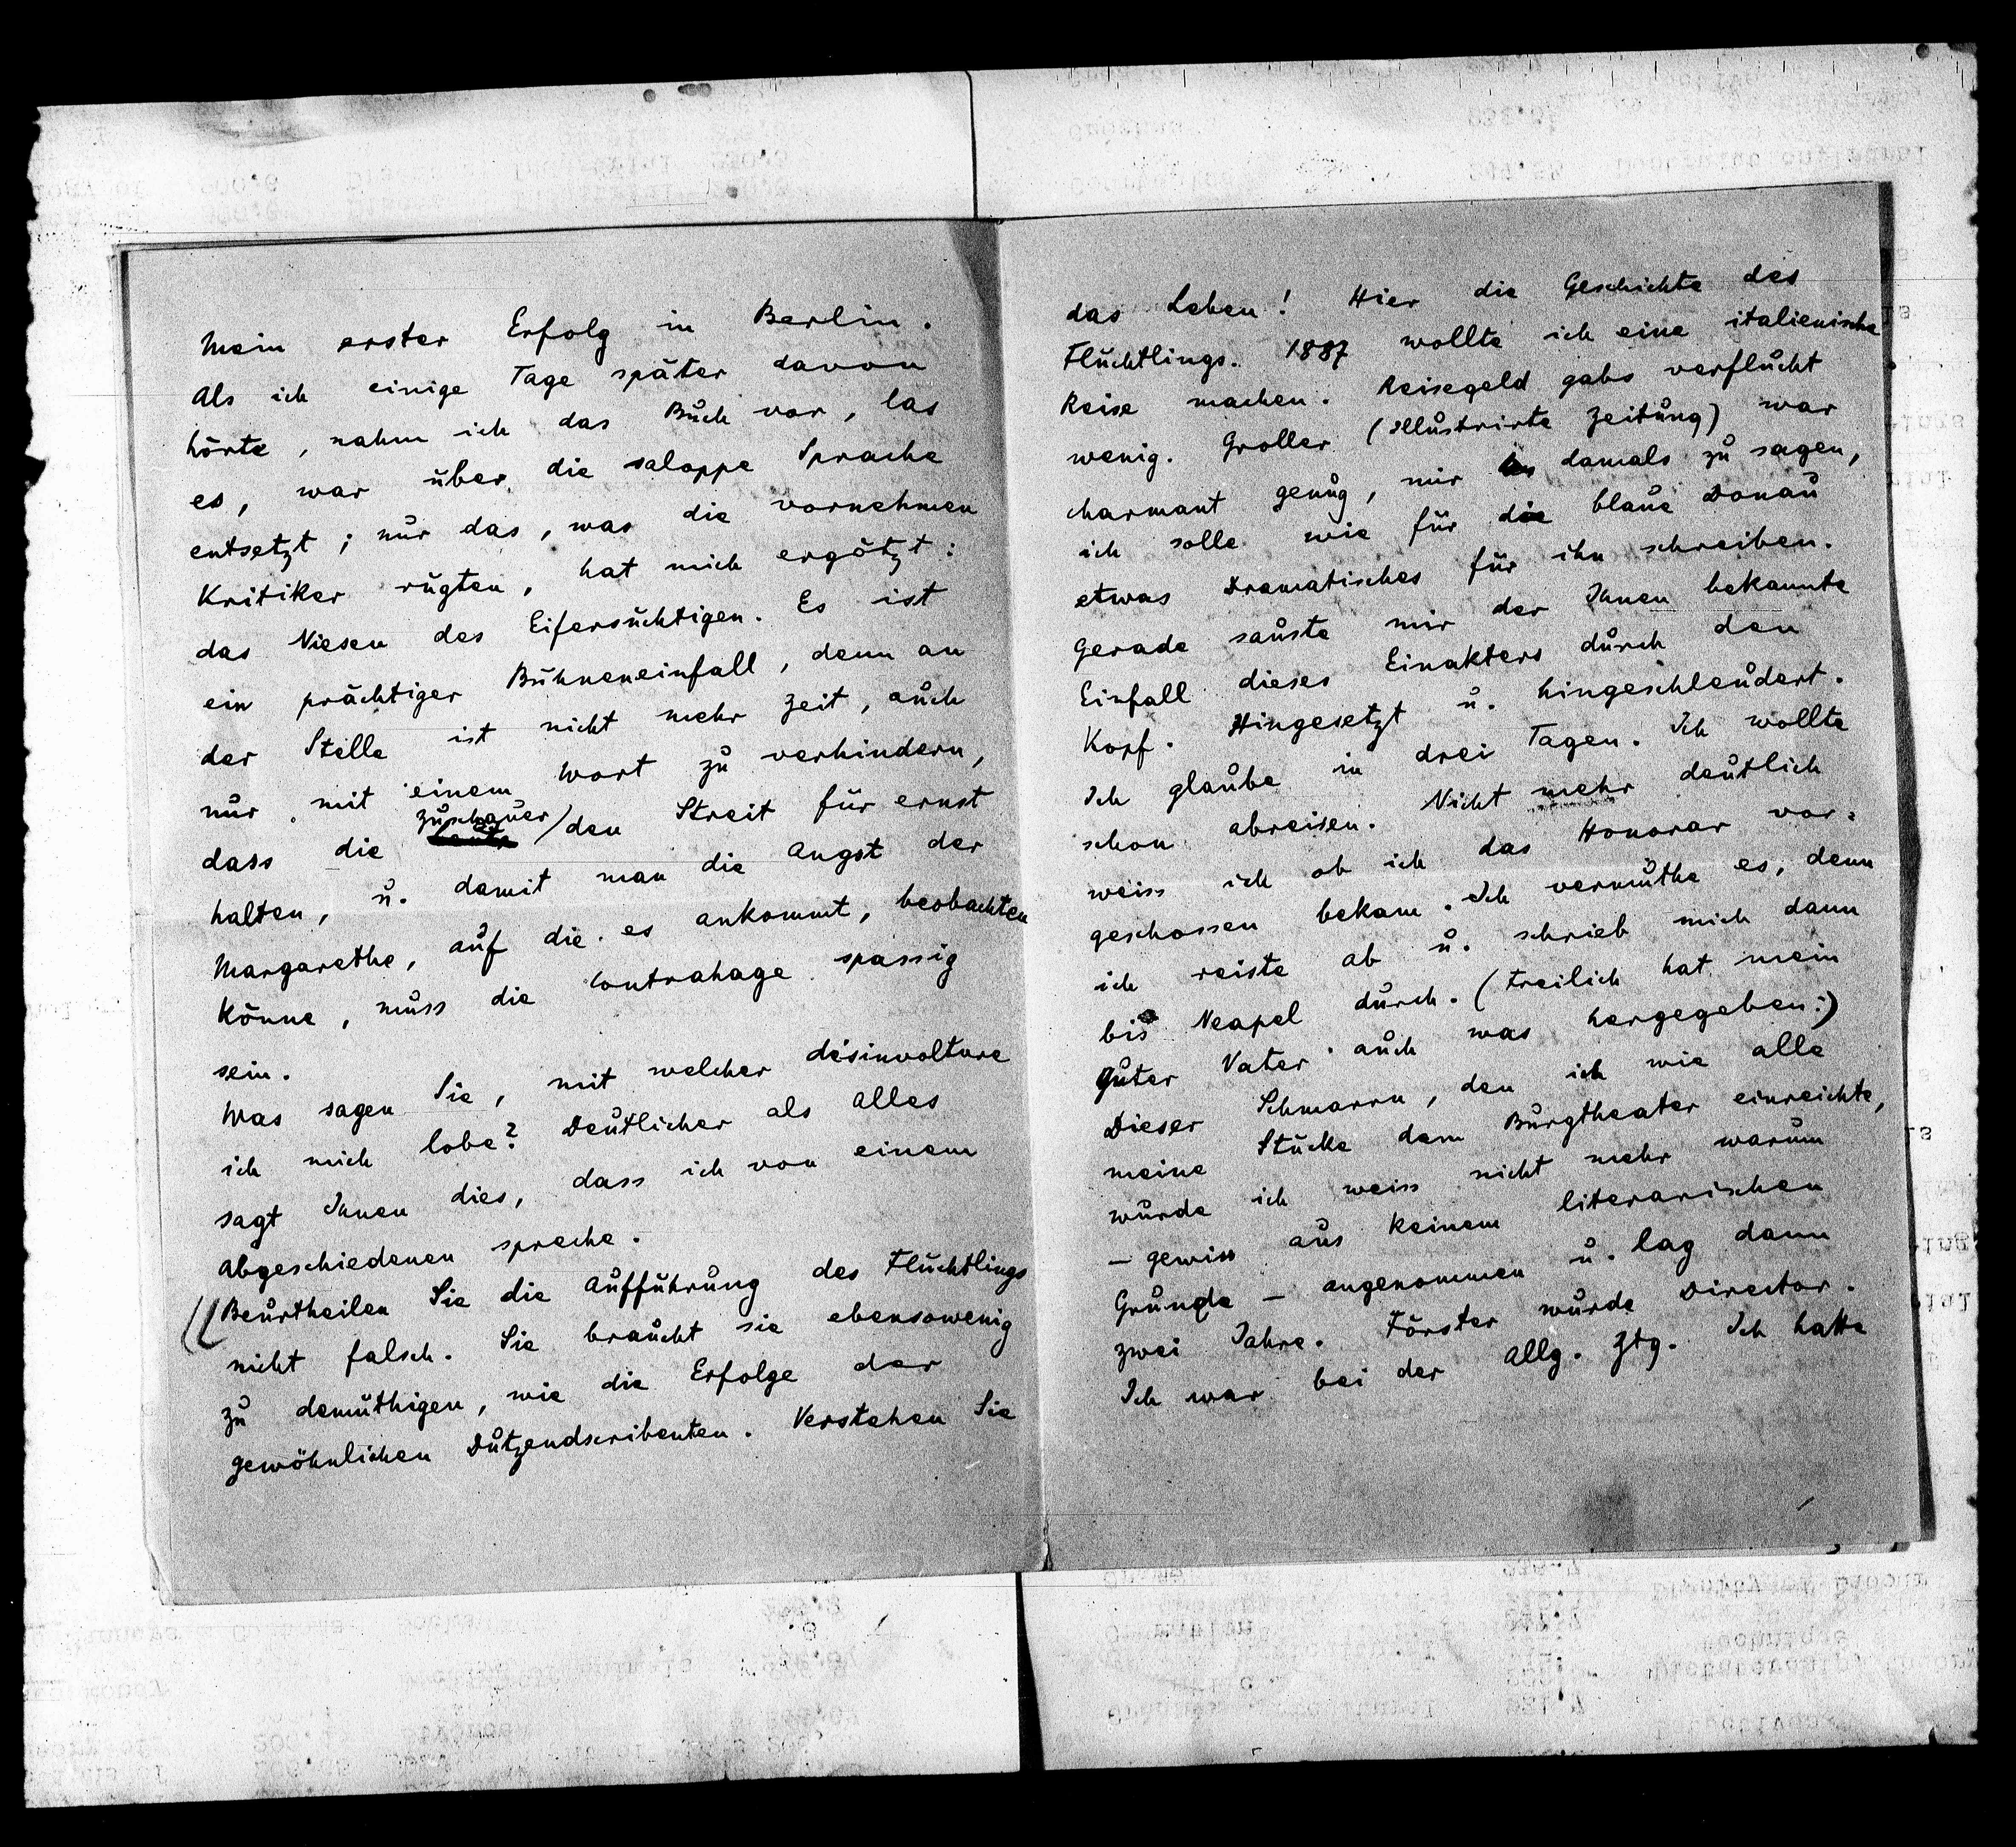 Mein erster Erfolg in Berlin.
Als ich einige Tage später davon
hörte, nahm ich das Buch vor, las
es, war über die saloppe Sprache
entsetzt; nur das, was die vornehmen
Kritiker rügten, hat mich ergötzt:
das Niesen des Eifersüchtigen. Es ist
ein prächtiger Bühneneinfall, denn an
der Stelle ist nicht mehr Zeit, auch
nur mit einem Wort zu verhindern,
dass die Zuschauer den Streit für ernst
halten, u. damit man die Angst der
Margarethe, auf die es ankommt, beobachten
könne, muss die Contrahage spassig
sein.
Was sagen Sie, mit welcher désinvolture
ich mich lobe? Deutlicher als Alles
sagt Ihnen dies, dass ich von einem
Abgeschiedenen spreche.
Beurtheilen Sie die Aufführung des Flüchtlings
nicht falsch. Sie braucht sie ebensowenig
zu demüthigen, wie die Erfolge der
gewöhnlichen Dutzendscribenten. Verstehen Sie
das Leben! Hier die Geschichte des
Flüchtlings. 1887 wollte ich eine italienische
Reise machen. Reisegeld gabs verflucht
wenig. Groller (Illustrirte Zeitung) war
charmant genug, mir damals zu sagen,
ich solle wie für die blaue Donau
etwas Dramatisches für ihn schreiben.
Gerade sauste mir der Ihnen bekannte
Einfall dieses Einakters durch den
Kopf. Hingesetzt u. hingeschleudert.
Ich glaube in drei Tagen. Ich wollte
schon abreisen. Nicht mehr deutlich
weiss ich ob ich das Honorar vor-
geschossen bekam. Ich vermuthe es, denn
ich reiste ab u. schrieb mich dann
bis Neapel durch. (Freilich hat mein
guter Vater auch was hergegeben.)
Dieser Schmarrn, den ich wie alle
meine Stücke dem Burgtheater einreichte,
wurde ich weiss nicht mehr warum
– gewiss aus keinem literarischen
Grunde – angenommen u. lag dann
zwei Jahre. Förster wurde Director.
Ich war bei der Allg. Ztg. Ich hatte